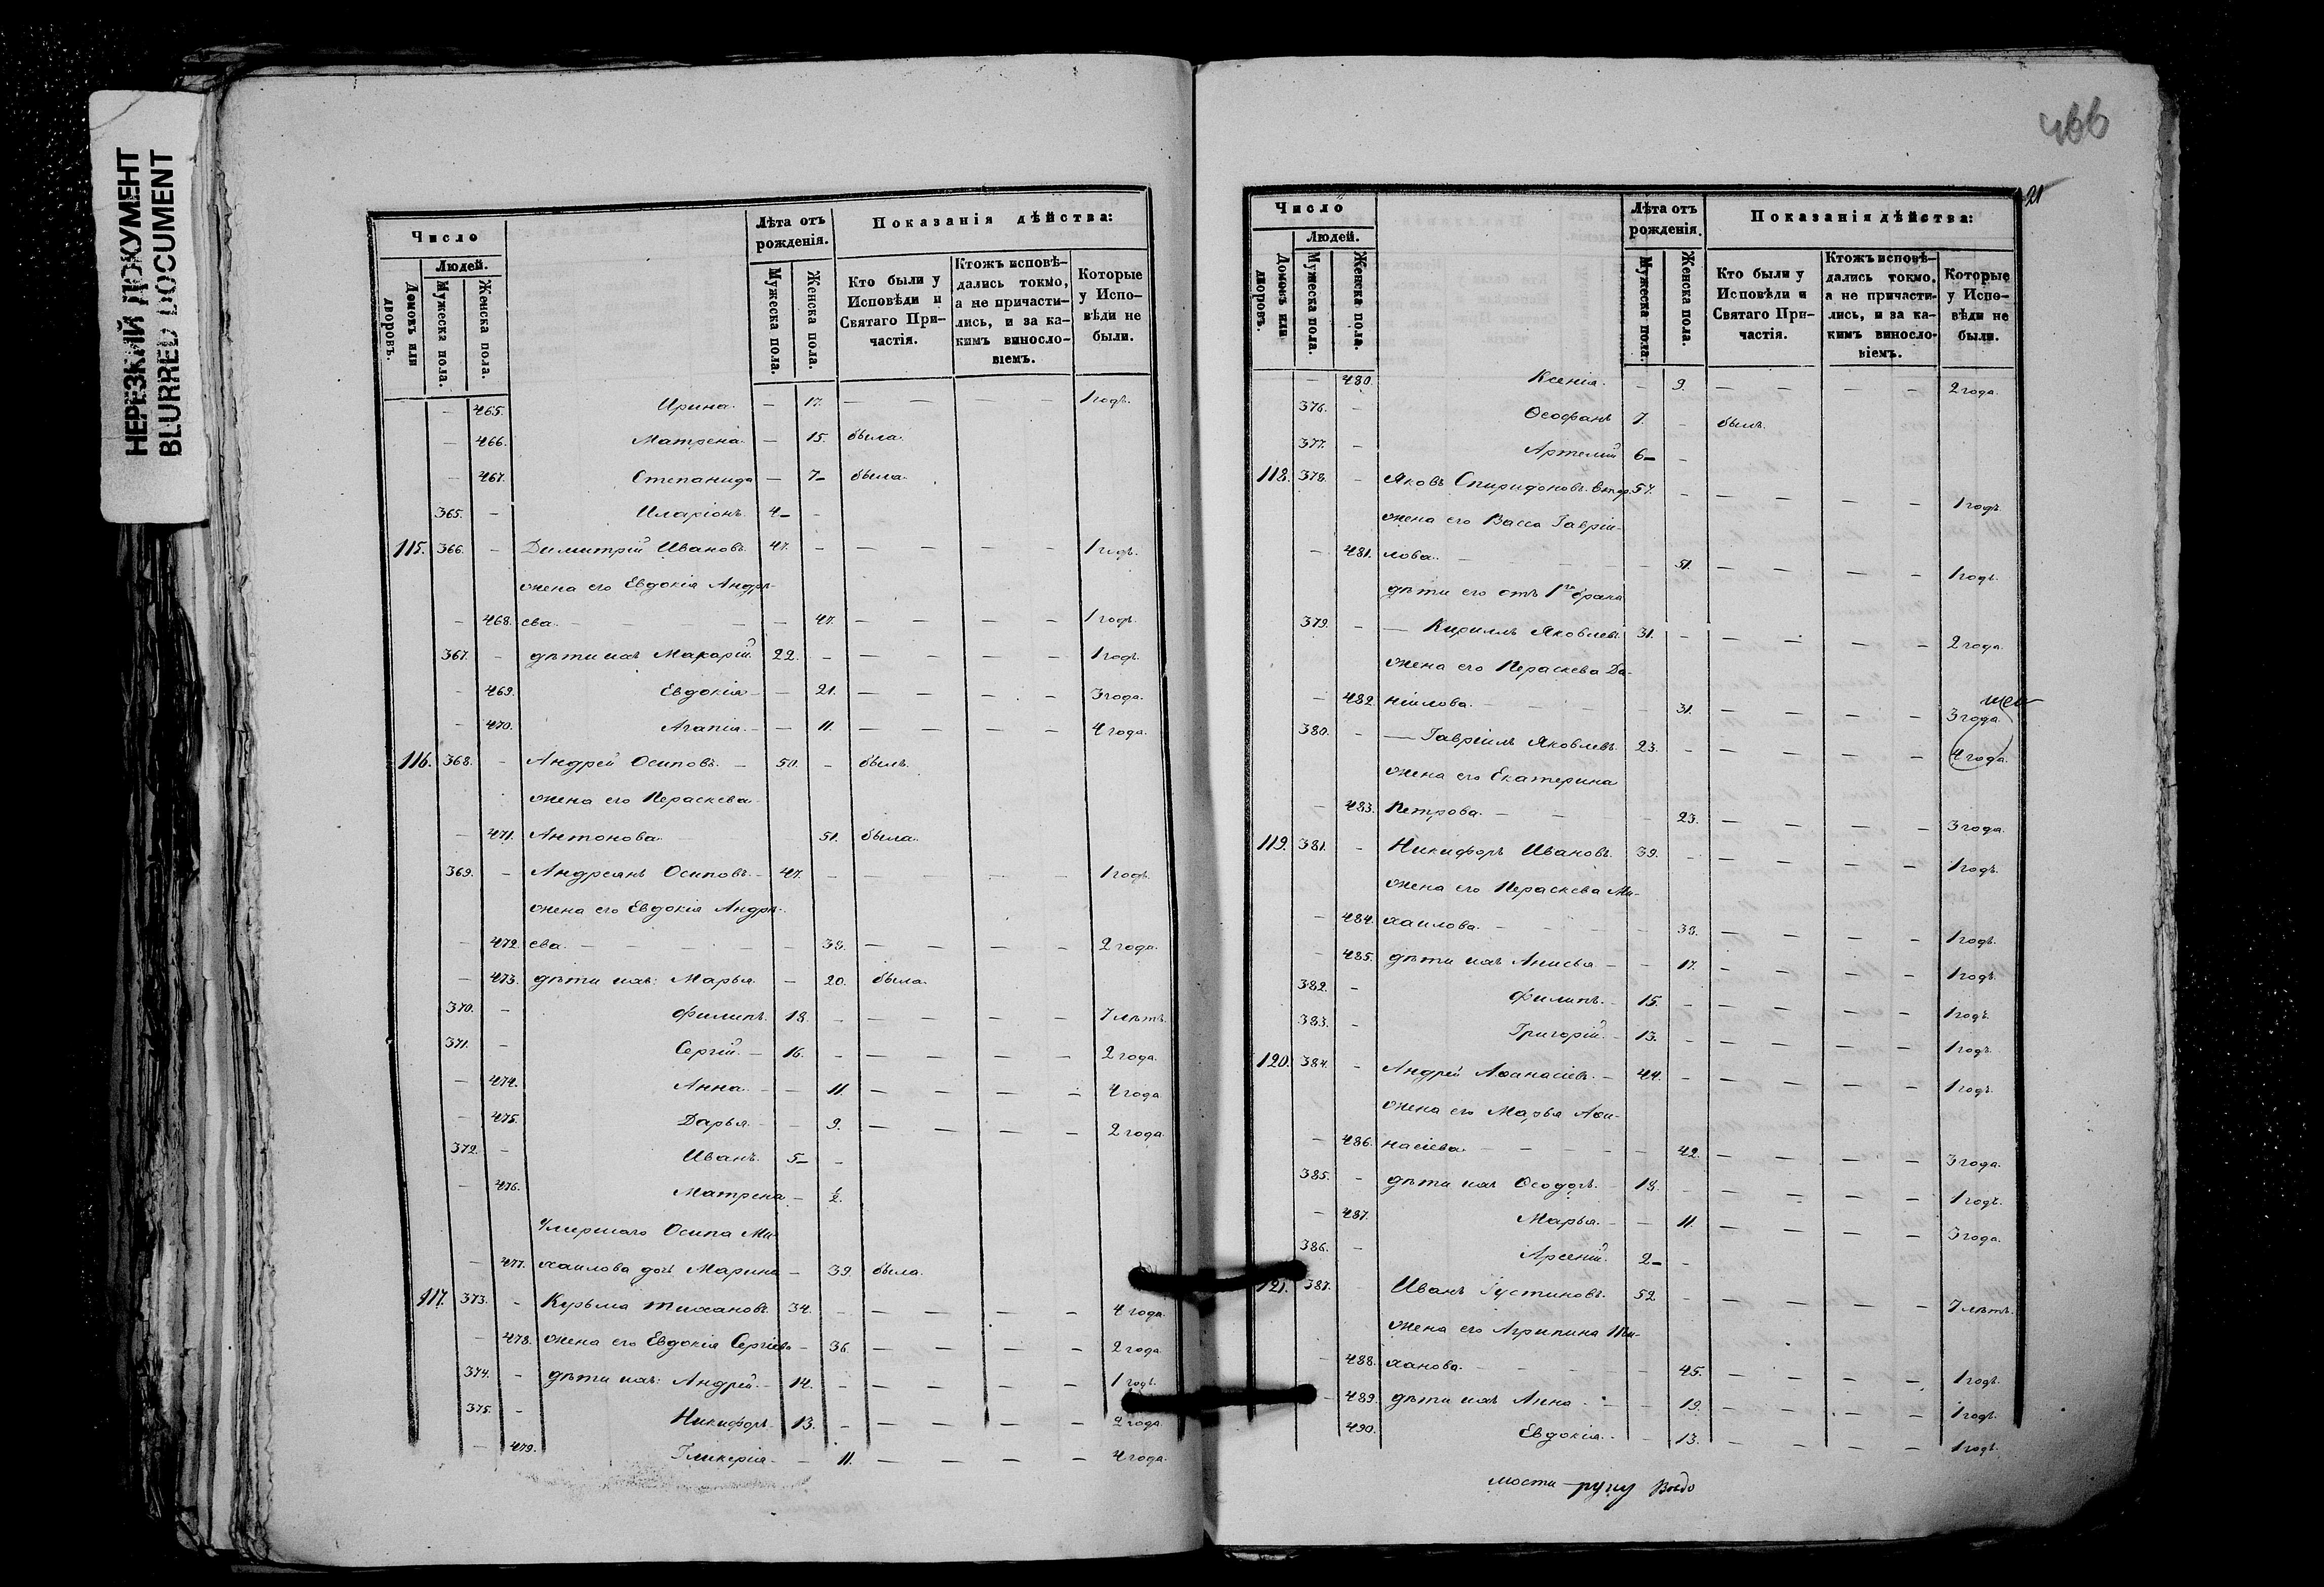 НЕРЕЗКИЙ ДОКУМЕНТ
BLURRED DOCUMENT
Число
Лѣта отъ рожденія.
Показанія дѣйства:
Домовъ или дворовъ.
Людей.
Мужеска пола.
Женска пола.
Мужеска пола.
Женска пола.
Кто были у Исповѣди и Святаго Причастія.
Ктожъ исповѣдались токмо, а не причастились, и за какимъ винословіемъ.
Которые у Исповѣди не были.
— 465. Ирина. — 17. — — — — 1 годъ.
— 466. Матрена. — 15. была.
— 467. Степанида — 7 — была.
365. — Иларіонъ. 4 — -
115. 366. — Димитрій Ивановъ. 47. - — — — — 1 годъ.
жена его Евдокія Андрѣ-
— 468. ева. — — — — — 47. — — — — 1 годъ.
367. — дѣти ихъ Макарій. 22. - — — — — 1 годъ.
— 469. Евдокія — — 21. — — — — 3 года.
— 470. Агапія. — — 11. — — — — 4 года.
116. 368. — Андрей Осиповъ. — 50. - былъ.
жена его Параскева
— 471. Антонова. 51. была.
369. — Андреянъ Осиповъ. — 47. - — — — — 1 годъ.
жена его Евдокія Андрѣ-
— 472. ева. — — — — — 38. — — — — 2 года.
— 473. дѣти ихъ: Марья. — 20. была.
370. — Филипъ. 18. - — — — — 7 лѣтъ.
371. — Сергій. — 16. - — — — — 2 года.
— 474. Анна. — — 11. — — — — 4 года
— 475. Дарья. — - 9. — — — — 2 года
372. — Иванъ. 5 — -
— 476. Матрена — ½.
Умершаго Осипа Ми-
— 477. хаилова дочь Марина — 39. была.
117. 373. — Кузьма Тихановъ. 34. - — — — — 4 года
— 478. жена его Евдокія Сергіева — 36. — — — — 2 года
374. — дѣти ихъ: Андрей. — 14. - — — — — 1 годъ.
375. — Никифоръ. 13. - — — — — 2 года.
— 479. Гликерія. — - 11. — — — — 4 года.
466
21
Число
Лѣта отъ рожденія.
Показанія дѣйства:
Домовъ или дворовъ.
Людей.
Мужеска пола.
Женска пола.
Мужеска пола.
Женска пола.
Кто были у Исповѣди и Святаго Причастія.
Ктожъ исповѣдались токмо, а не причастились, и за какимъ винословіемъ.
Которые у Исповѣди не были.
— 480. Ксенія. — 9. — — — — 2 года.
376. — Ѳеофанъ 7. - былъ.
377. — Артемій 6 — -
118. 378. — Яковъ Спиридоновъ. 57. - — — — — 1 годъ.
жена его Васса Гаврии-
— 481. лова. — — — — — 51. — — — — 1 годъ.
дѣти его отъ 1го брака
379. — — Кириллъ Яковлевъ 31. - — — — — 2 года.
жена его Параскева Да-
— 482. ніилова. — — — — 31. — — — — 3 года.
380. — — Гавріилъ Яковлевъ. 23. - — — — — 4 года.
жена его Екатерина
— 483. Петрова. — — — 23. — — — — 3 года.
119. 381. — Никифоръ Ивановъ. 39. - — — — — 1 годъ.
жена его Параскева Ми-
— 484. хаилова. — — — — 38. — — — — 1 годъ.
— 485. дѣти ихъ Анисья — — 17. — — — — 1 годъ.
382. — Филипъ. — 15. - — — — — 1 годъ.
383. — Григорій. — 13. - — — — — 1 годъ.
120. 384. — Андрей Аѳанасіевъ. — 44. - — — — — 1 годъ.
жена его Марья Аѳа-
— 486. насіева. — — — — — 42. — — — — 3 года.
385. — дѣти ихъ Ѳеодоръ. — 18. - — — — — 1 годъ.
— 487. Марья. — — 11. — — — — 3 года.
386. — Арсеній. 2 — -
121. 387. Иванъ Густиновъ. 52. - — — — — 7 лѣтъ.
жена его Агрипина Ти-
— 488. ханова. — — — — — 45. — — — — 1 годъ.
— 489. дѣти ихъ Анна — — 19. — — — — 1 годъ.
490. Евдокія. — - 13. — — — — 1 годъ.
мости руку